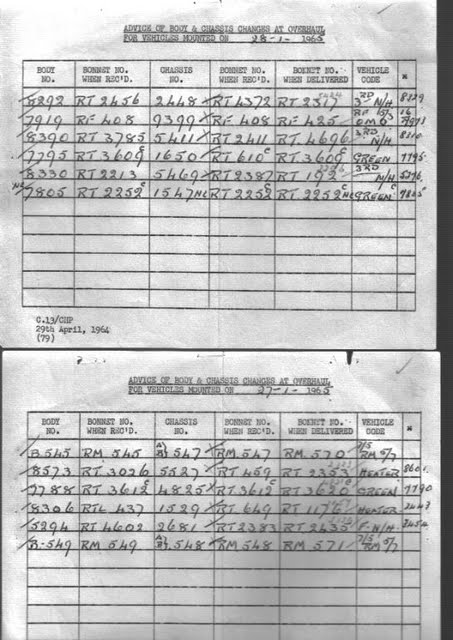 ADVICE OF BODY & CHASSIS CHANGES AT OVERHAUL
FOR VEHICLES MOUNTED ON 28-1- 1965
BODY NO. BONNET NO. WHEN REC'D. CHASSIS NO. BONNET NO. WHEN REC'D. BONNET NO. WHEN DELIVERED VEHICLE CODE *
8292 RT 2456 2448 RT 4372 RT 2317 3RD N/H
7919 RF 408 9399 RF 408 RF 425
8390 RT 3785 5411 RT 2411 RT 4696 3RD N/H
7795 RT 3609C 1650 RT 610C RT 3609C GREEN 7795
8330 RT 2213 5469 RT 2387 RT 192 3RD N/H
NC 7805 RT 2252C 1547NC RT 2252C RT 2252C NC GREEN 7805
C.13/CHP
29th April, 1964
(79)
ADVICE OF BODY & CHASSIS CHANGES AT OVERHAUL
FOR VEHICLES MOUNTED ON 27-1- 1965
BODY NO. BONNET NO. WHEN REC'D. CHASSIS NO. BONNET NO. WHEN REC'D. BONNET NO. WHEN DELIVERED VEHICLE CODE *
B.545 RM 545 547 RM 547 RM 570 7/5 RM 5/7
8573 RT 3026 5527 RT 459 RT 2353 HEATER
7788 RT 3612C 4825 RT 3612C RT 3620 GREEN 7790
8306 RTL 437 1529 RT 649 RT 1176 HEATER
5294 RT 4602 2681 RT 2383 RT 2435 F-N/H 3454
B-549 RM 549 548 RM 548 RM 571 7/5 RM 5/7